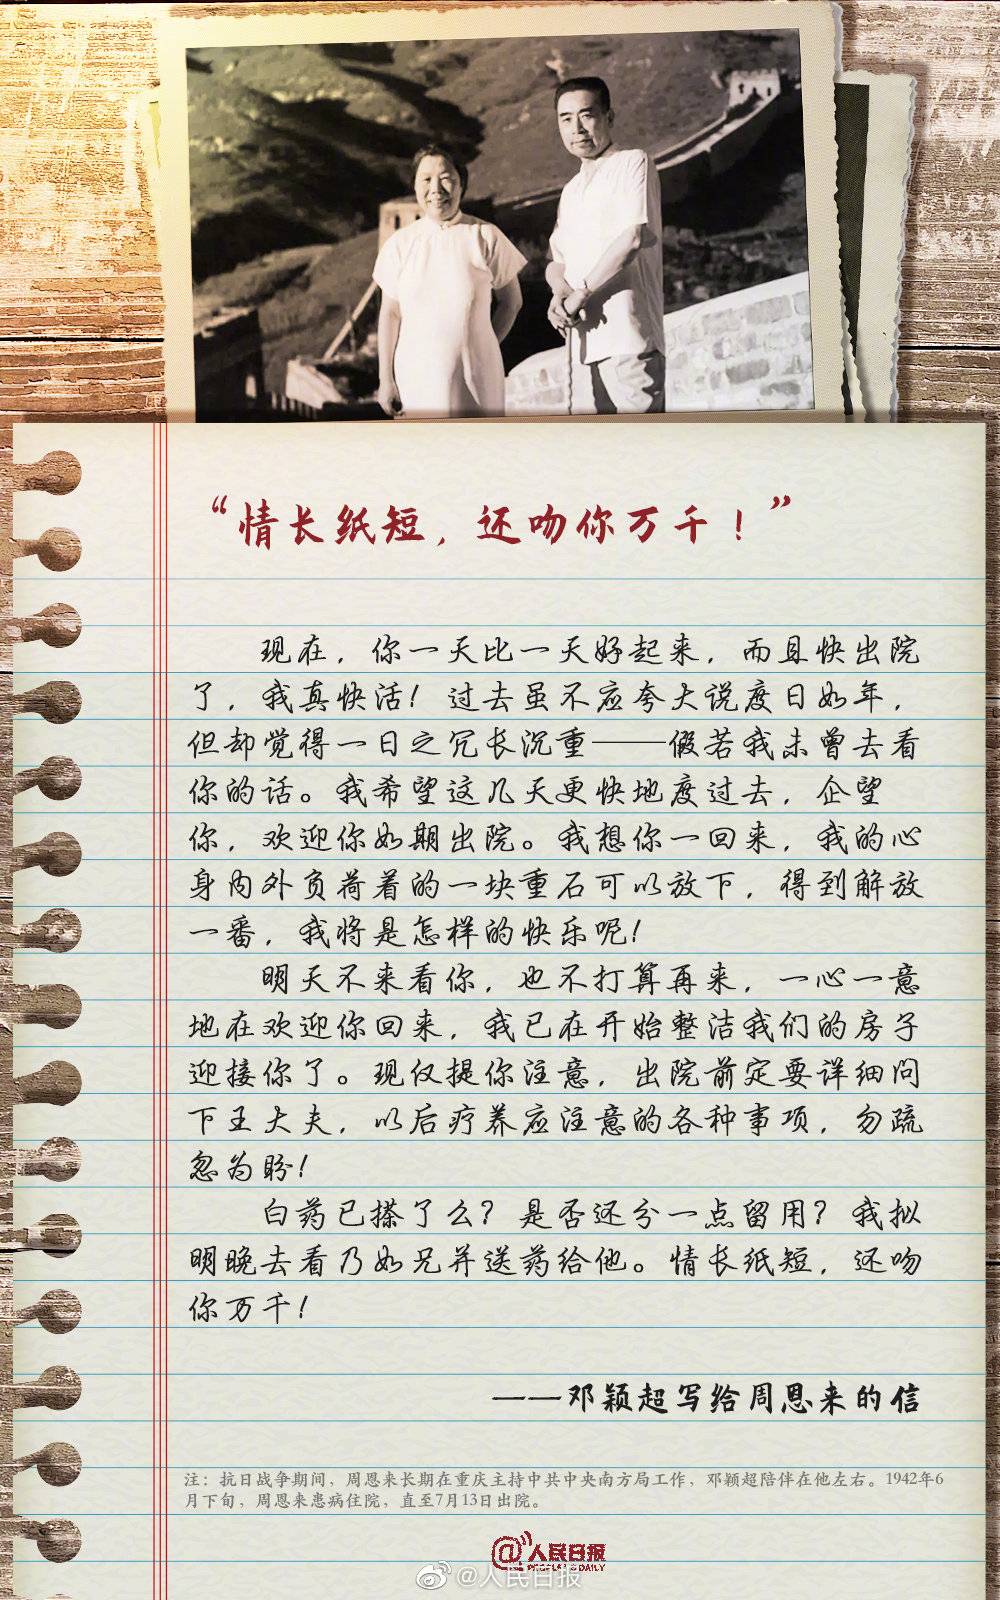 “情长纸短，还吻你万千！”
现在，你一天比一天好起来，而且快出院
了，我真快活！过去虽不应夸大说度日如年，
但却觉得一日之冗长沉重——假若我未曾去看
你的话。我希望这几天更快地度过去，企望
你，欢迎你如期出院。我想你一回来，我的心
身内外负荷着的一块重石可以放下，得到解放
一番，我将是怎样的快乐呢！
明天不来看你，也不打算再来，一心一意
地在欢迎你回来，我已在开始整洁我们的房子
迎接你了。现仅提你注意，出院前定要详细问
下王大夫，以后疗养应注意的各种事项，勿疏
忽为盼！
白药已搽了么？是否还分一点留用？我拟
明晚去看乃如兄并送药给他。情长纸短，还吻
你万千！
——邓颖超写给周恩来的信
注：抗日战争期间，周恩来长期在重庆主持中共中央南方局工作，邓颖超陪伴在他左右。1942年6
月下旬，周恩来患病住院，直至7月13日出院。
@人民日报
PEOPLE'S DAILY
@人民日报